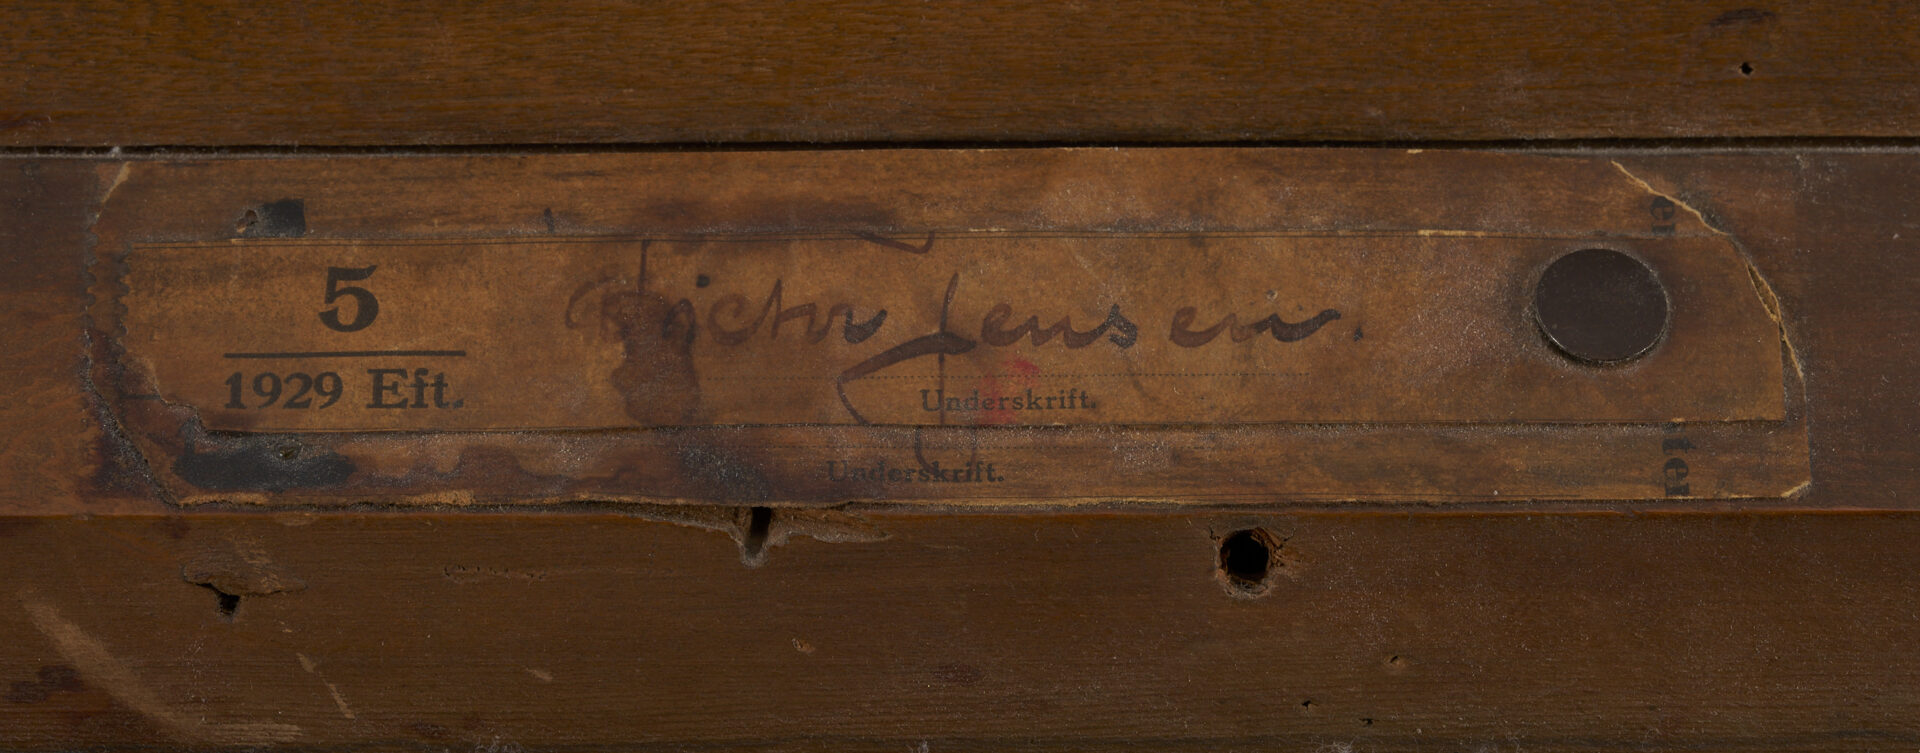 5
1929 Eft.
Victor Jensen.
Underskrift.
Underskrift.
er
ter